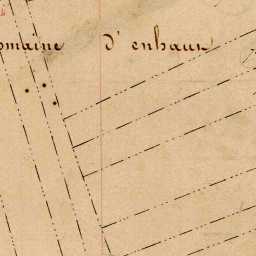 omaine d'enhaut